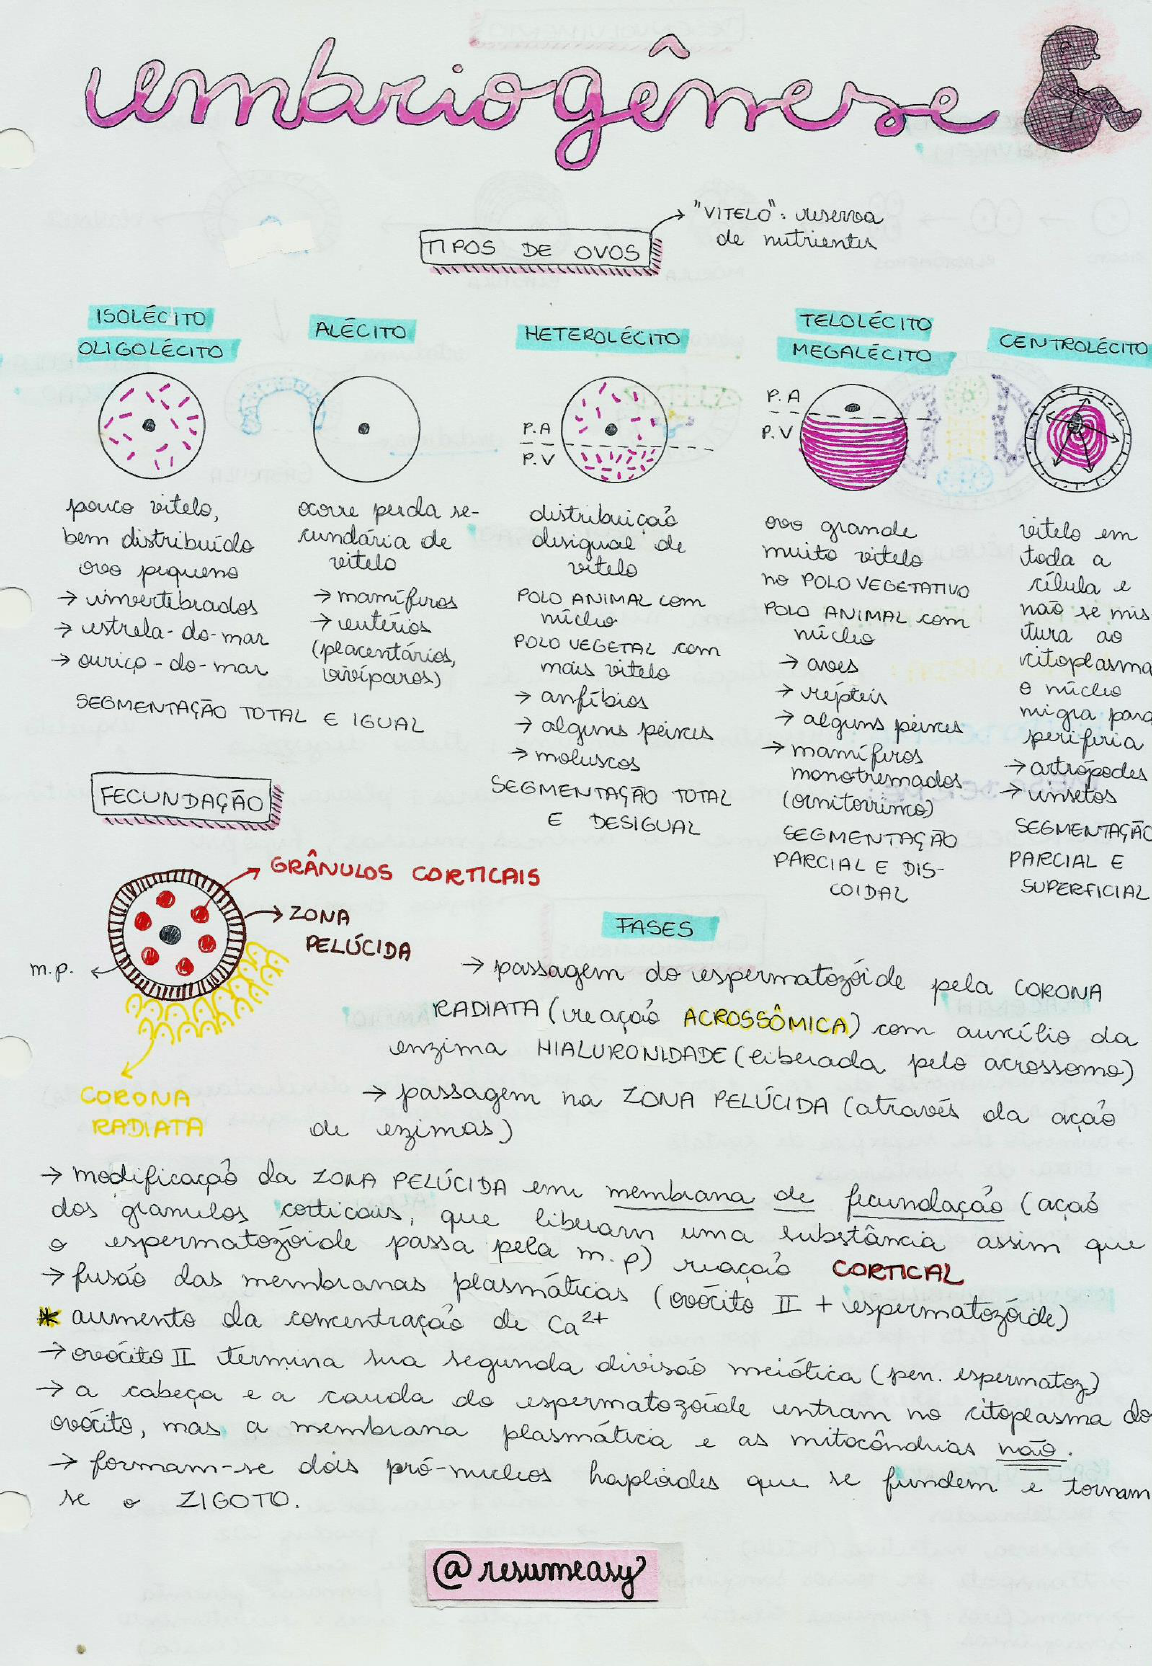 embriogênese
TIPOS DE OVOS
"VITELO": reserva
de nutrientes
ISOLÉCITO
OLIGOLÉCITO
pouco vitelo,
bem distribuído
ovo pequeno
→ invertebrados
→ estrela-do-mar
→ ouriço-do-mar
ALÉCITO
ocorre perda se-
cundária de
vitelo
→ mamíferos
→ eutérios
(placentários,
vivíparos)
SEGMENTAÇÃO TOTAL E IGUAL
HETEROLÉCITO
P.A
P.V
distribuição
desigual de
vitelo
POLO ANIMAL com
núcleo
POLO VEGETAL com
mais vitelo
→ anfíbios
→ alguns peixes
→ moluscos
SEGMENTAÇÃO TOTAL
E DESIGUAL
TELOLÉCITO
MEGALÉCITO
P.A
P.V
ovo grande
muito vitelo
no POLO VEGETATIVO
POLO ANIMAL com
núcleo
→ aves
→ répteis
→ alguns peixes
→ mamíferos
monotremados
(ornitorrinco)
SEGMENTAÇÃO
PARCIAL E DIS-
COIDAL
CENTROLÉCITO
vitelo em
toda a
célula e
não se mis
tura ao
citoplasma
o núcleo
migra para
periferia
→ artrópodes
→ insetos
SEGMENTAÇÃO
PARCIAL E
SUPERFICIAL
FECUNDAÇÃO
GRÂNULOS CORTICAIS
ZONA
PELÚCIDA
m.p.
CORONA
RADIATA
FASES
→ passagem do espermatozóide pela CORONA
RADIATA (reação ACROSSÔMICA) com auxílio da
enzima HIALURONIDADE (liberada pelo acrossomo)
→ passagem na ZONA PELÚCIDA (através da ação
de ezimas)
→ modificação da ZONA PELÚCIDA em membrana de fecundação (ação
dos granulos corticais, que liberam uma substância assim que
o espermatozóide passa pela m.p) reação CORTICAL
→ fusão das membranas plasmáticas (ovócito II + espermatozóide)
* aumento da concentração de Ca²⁺
→ ovócito II termina sua segunda divisão meiótica (pen. espermatoz)
→ a cabeça e a cauda do espermatozóide entram no citoplasma do
ovócito, mas a membrana plasmática e as mitocôndrias não.
→ formam-se dois pró-nucleos haploides que se fundem e tornam
se o ZIGOTO.
@resumeasy